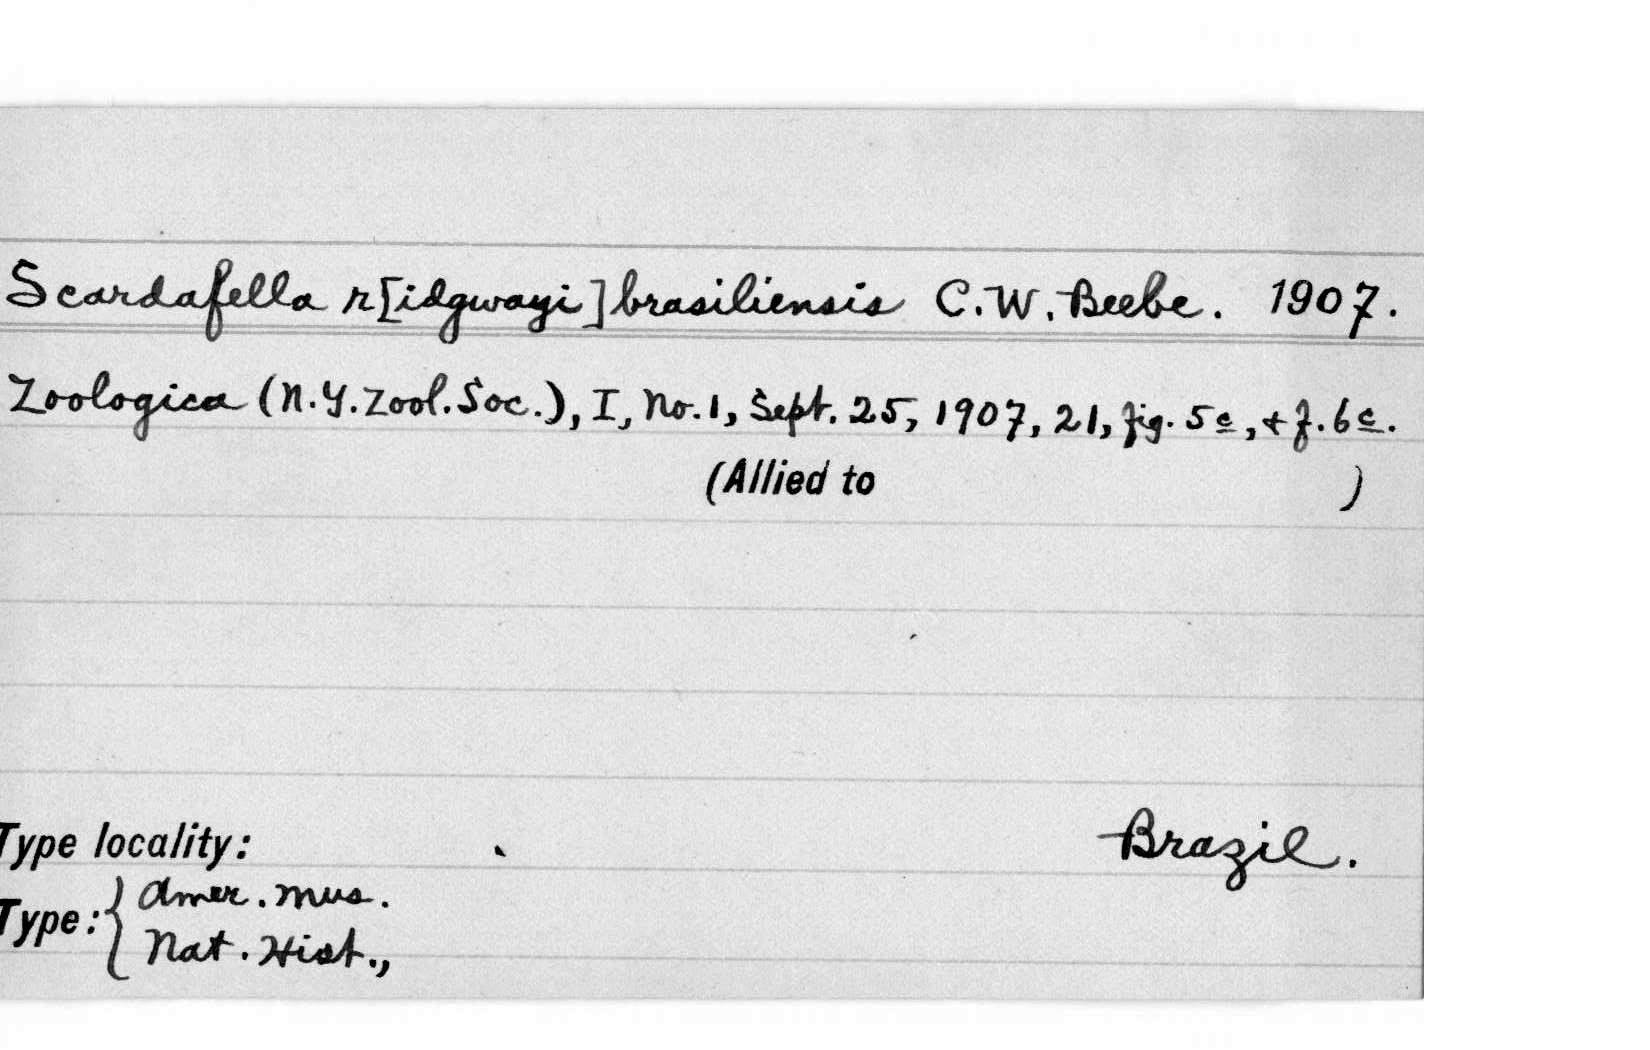 Scardafella r[idgwayi] brasiliensis C.W. Beebe. 1907.
Zoologica (N.Y. Zool. Soc.), I, No. 1, Sept. 25, 1907, 21, fig. 5c, + f. 6c.
(Allied to )
Type locality: Brazil.
Type: { Amer. Mus.
Nat. Hist.,